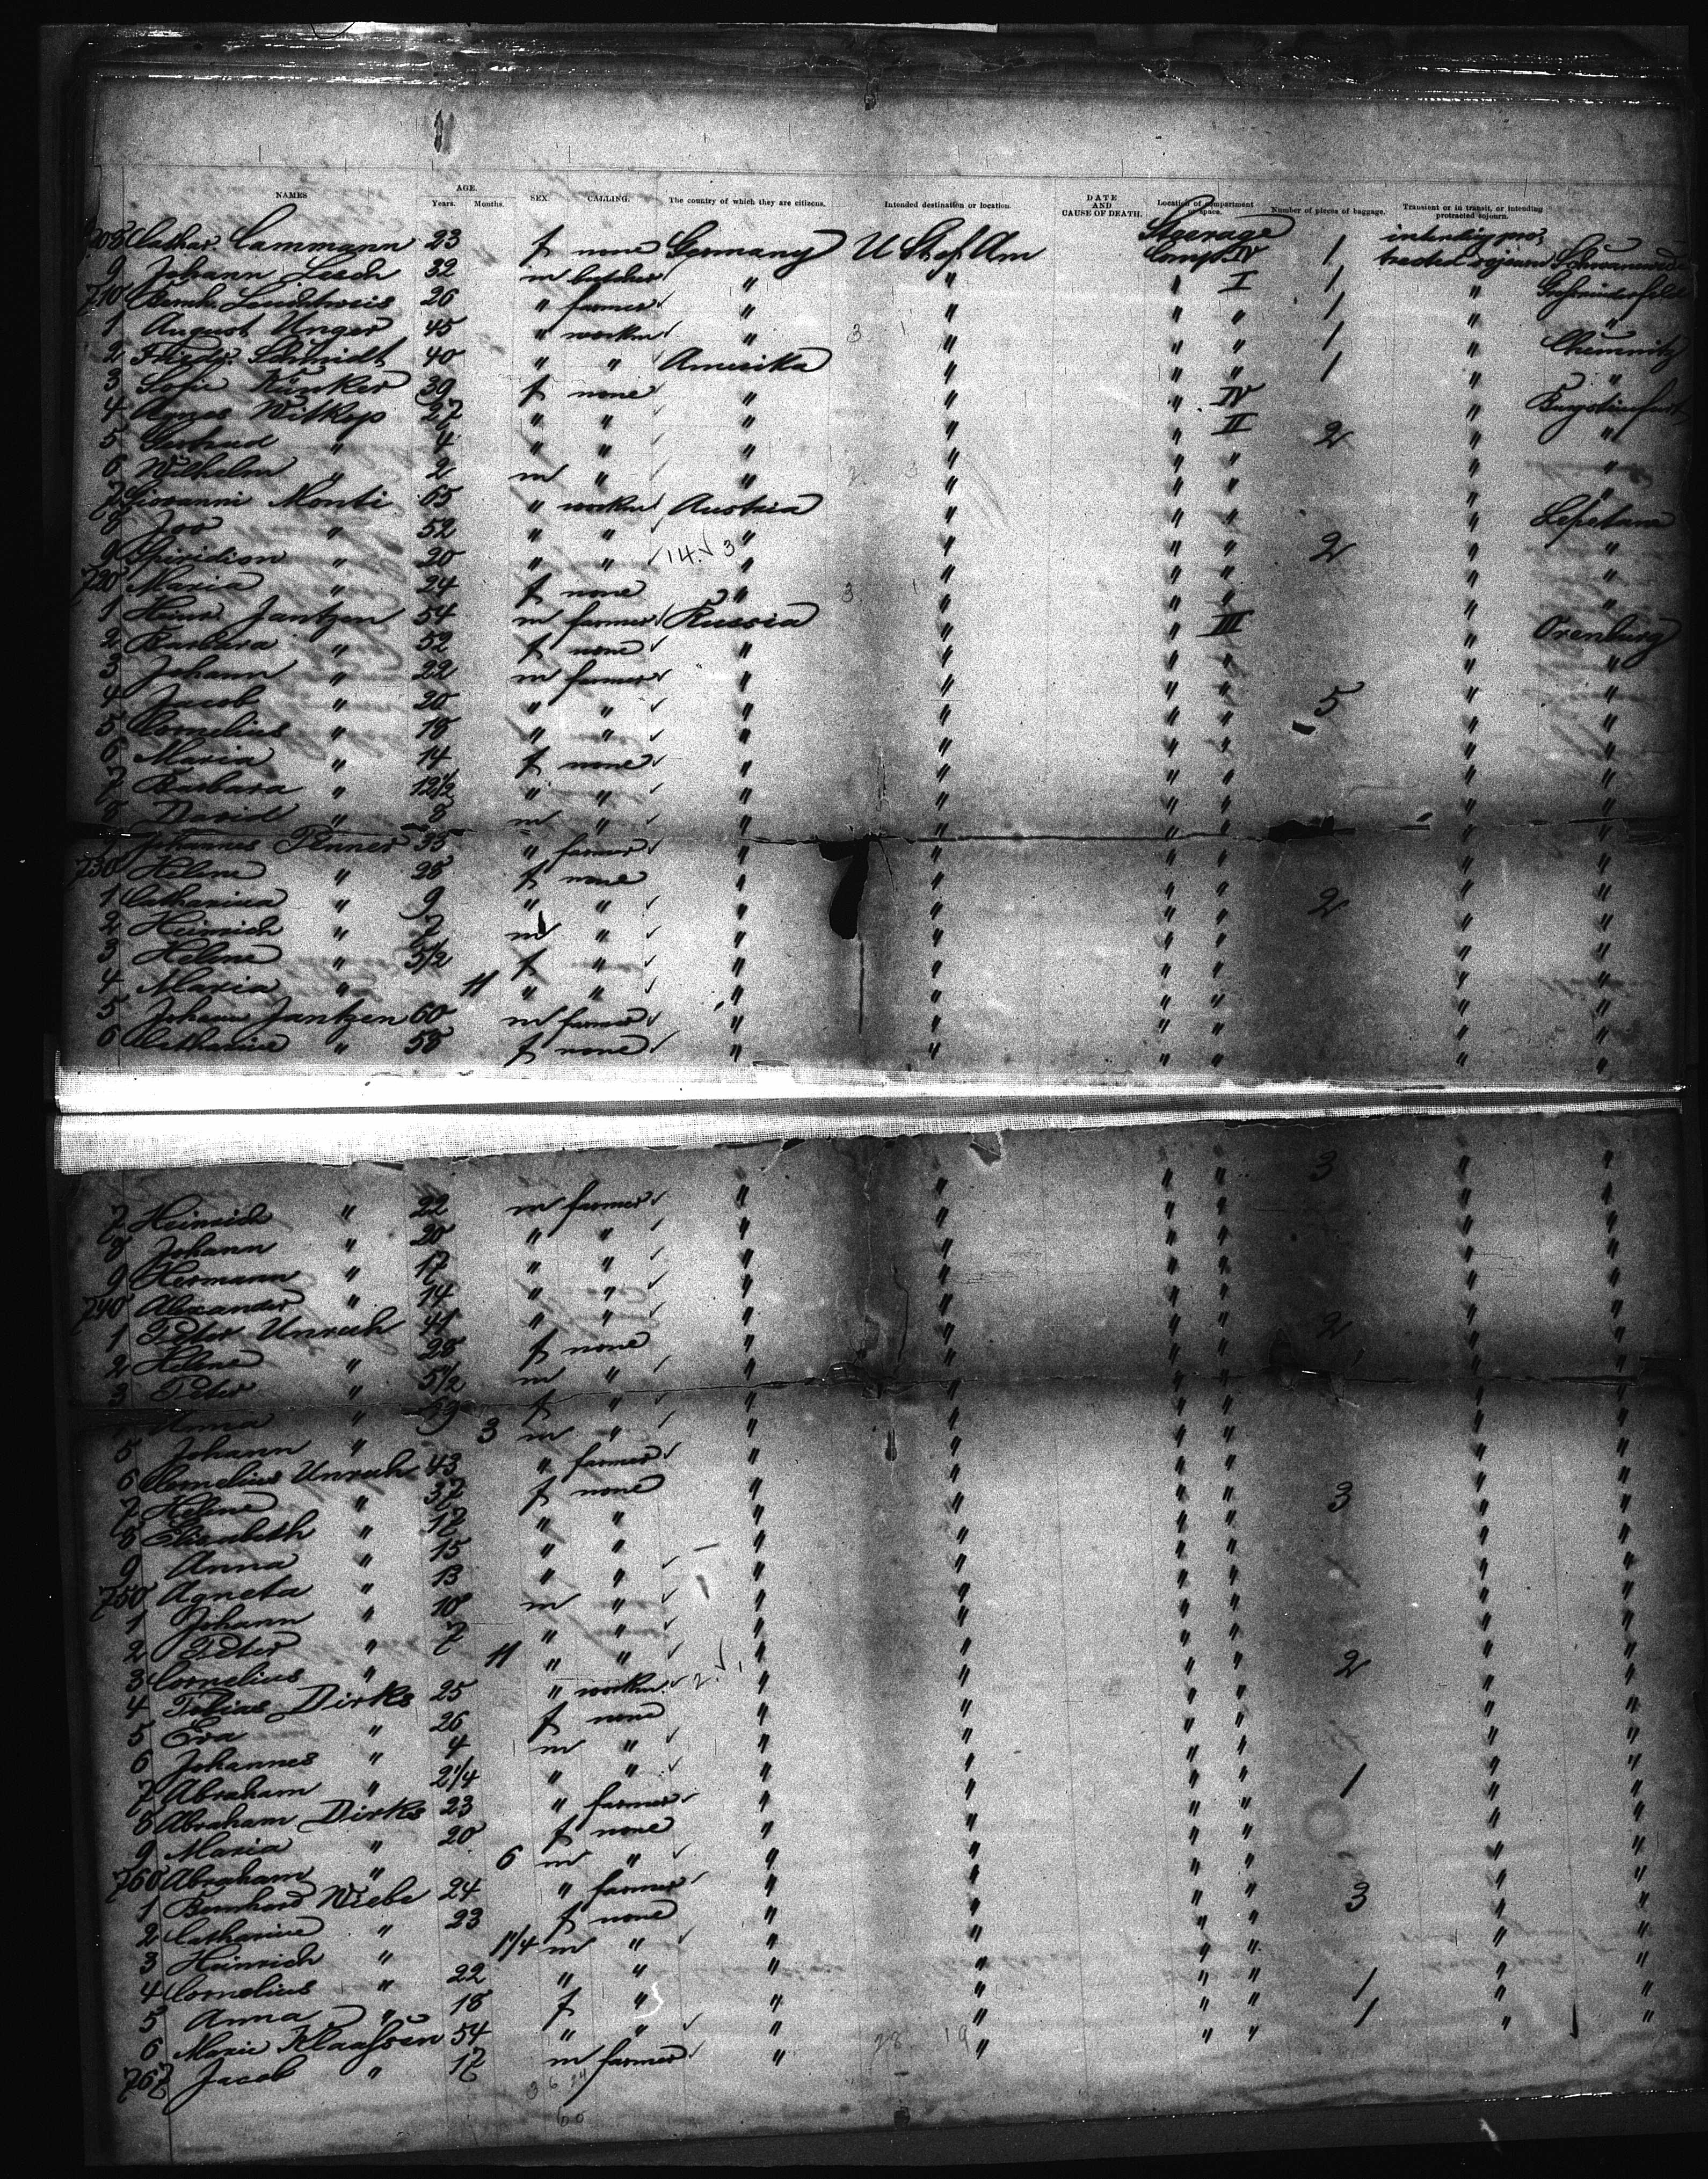 NAMES AGE. Years. Months. SEX. CALLING. The country of which they are citizens. Intended destination or location. DATE AND CAUSE OF DEATH. Location of compartment or space. Number of pieces of baggage. Transient or in transit, or intending protracted sojourn.
708 Cathar. Cammann 23 f none Germany U St of Am Steerage Comp. IV 1 intending pro, tracted sojourn
9 Johann Lesch 32 m butcher " " " I 1 "
710 Bernh. 26 " farmer " " " " 1 " "
1 August Unger 45 " workm " " " " 1 " Chemnitz
2 Friedr. Schmidt 40 " " Amerika " " " 1 " "
3 Sofie Künker 39 f none " " " IV "
4 Agnes Witkop 27 " " " " " II 2 " "
5 Gertrud " 4 " " " " " " " "
6 Wilhelm " 2 m " " " " " " "
7 Giovanni Monti 65 " workm Austria " " " " Lepetane
8 Joo " 52 " " " " " " 2 " "
9 Spiridion " 20 " " 14. 3 " " " " " "
720 Maria " 24 f none " " " " " "
1 Heinr Jantzen 54 m farmer Russia " " III " Orenburg
2 Barbara " 52 f none " " " " " "
3 Johann " 22 m farmer " " " " " "
4 Jacob " 20 " " " " " " 5 " "
5 Cornelius " 18 " " " " " " " "
6 Maria " 14 f none " " " " " "
7 Barbara " 12 1/2 " " " " " " " "
8 David " 8 m " " " " " " "
9 Johannes Penner 35 " farmer " " " " " "
730 Helene " 28 f none " " " " " "
1 Catharina " 9 " " " " " " 2 " "
2 Heinrich " 7 m " " " " " " "
3 Helene " 5 1/2 f " " " " " " "
4 Maria " 11 " " " " " " " "
5 Johann Jantzen 60 m farmer " " " " " "
6 Catharine " 58 f none " " " " " "
3
7 Heinrich " 22 m farmer " " " " " "
8 Johann " 20 " " " " " " " "
9 Hermann " 17 " " " " " " " "
740 Alexander " 14 " " " " " " " "
1 Peter Unruh 41 " " " " " " 2 " "
2 Helene " 28 f none " " " " " "
3 Peter " 5 1/2 m " " " " " " "
Anna " f " " " " " " "
5 Johann " 3 m " " " " " " "
6 Cornelius Unruh 43 " farmer " " " " " "
7 Helene " 37 f none " " " " 3 " "
8 Elisabeth " 17 " " " " " " " "
9 Anna " 15 " " " " " " " "
750 Agneta " 13 " " " " " " " "
1 Johann " 10 m " " " " " " "
2 Peter " 7 " " " " " " " "
3 Cornelius " 11 " " " " " " " "
4 Tobias Dirks 25 " workm " " " " 2 " "
5 Eva " 26 f none " " " " " "
6 Johannes " 4 m " " " " " " "
7 Abraham " 2 1/4 " " " " " " " "
8 Abraham Dirks 23 " farmer " " " " 1 " "
9 Maria " 20 f none " " " " " "
760 Abraham " 6 m " " " " " " "
1 Bernhard Wiebe 24 " farmer " " " " 3 " "
2 Catharine " 23 f none " " " " " "
3 Heinrich " 1 1/4 m " " " " " " "
4 Cornelius " 22 " " " " " " 1 " "
5 Anna " 18 f " " " " " 1 " "
6 Marie Klaaßen 54 " " " " " " " "
767 Jacob " 17 m farmer " " " "